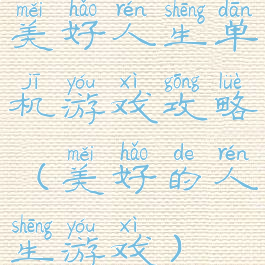 měi hǎo rén shēng dān
美好人生单
jī yóu xì gōng luè
机游戏攻略
měi hǎo de rén
（美好的人
shēng yóu xì
生游戏）